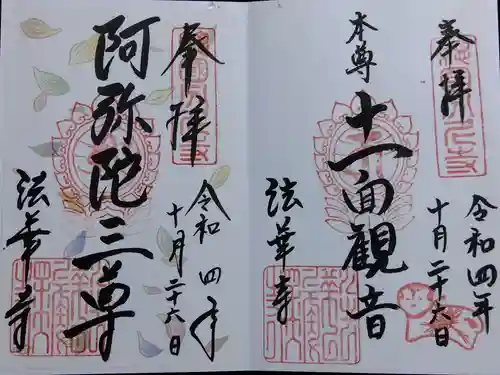 奉拝
令和四年
十月二十六日
本尊
十一面観音
法華寺
奉拝
令和四年
十月二十六日
阿弥陀三尊
法華寺